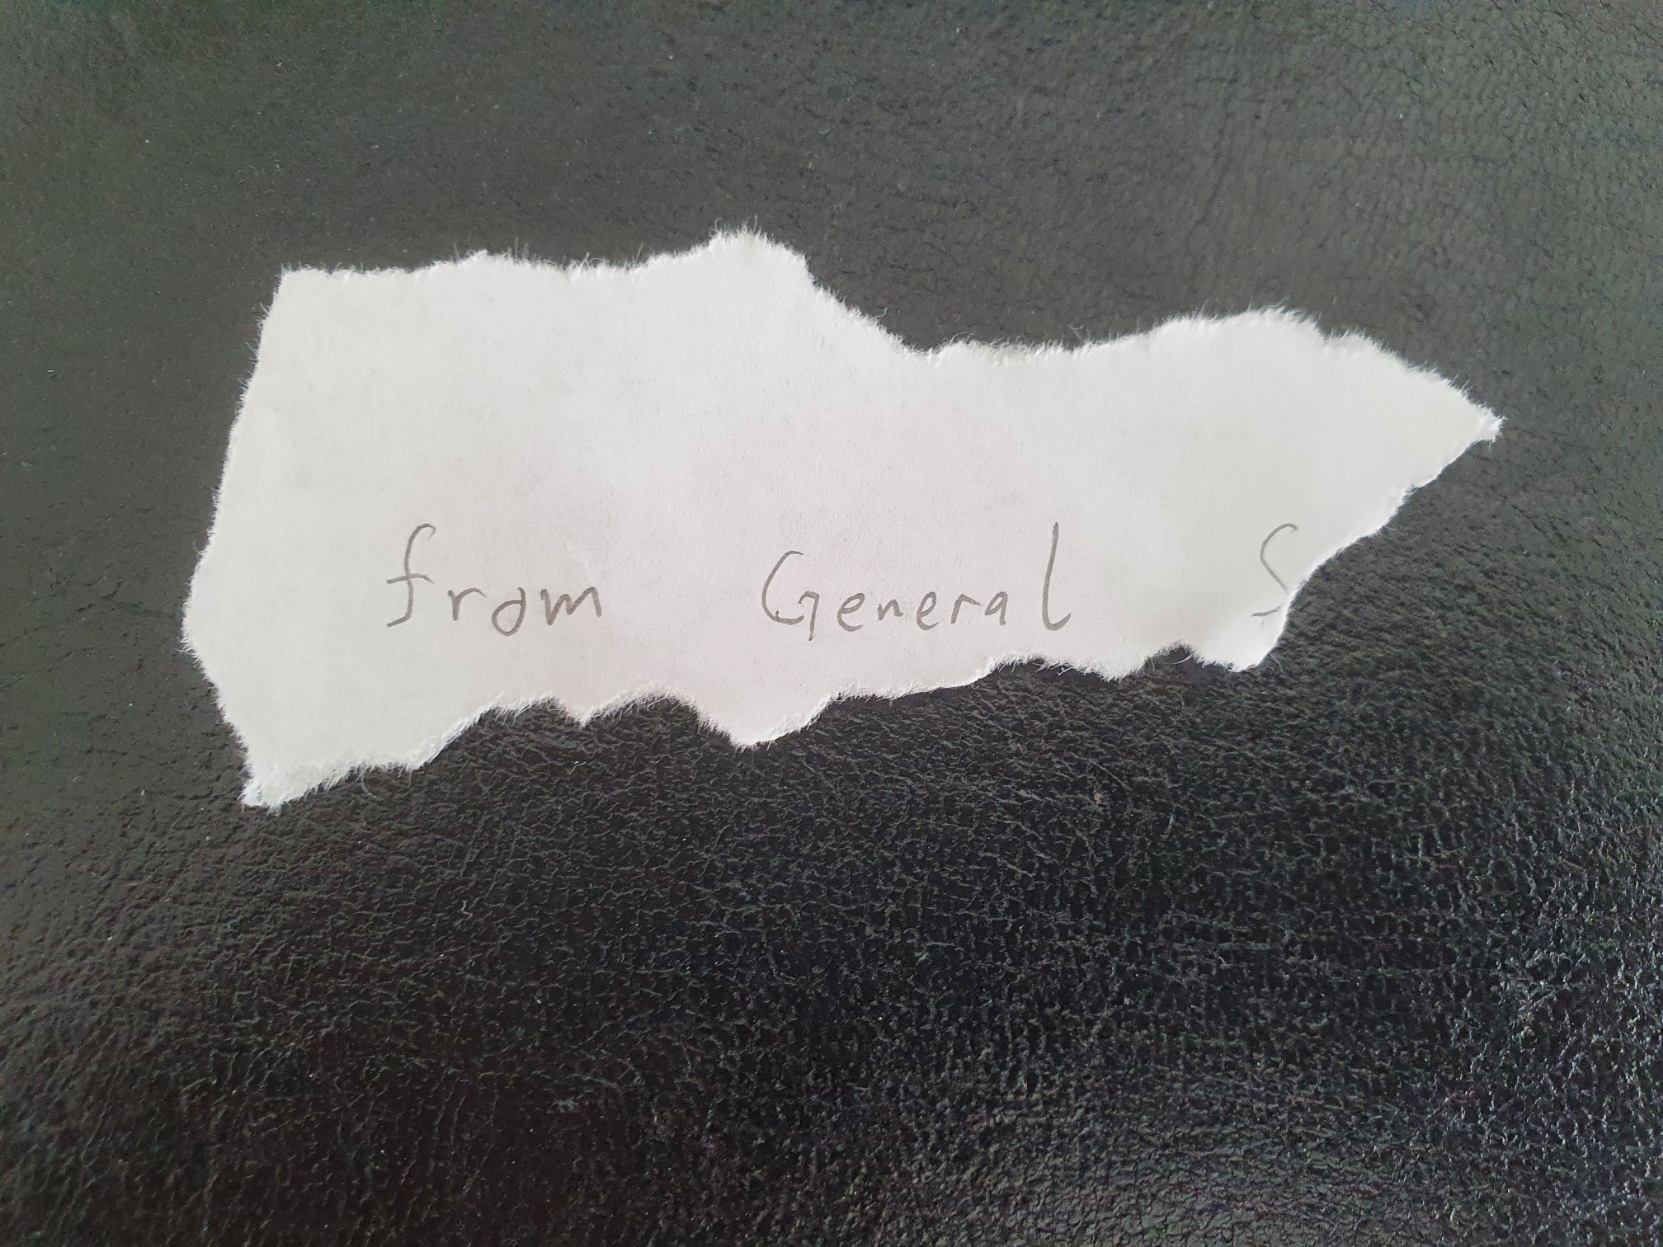 from General S